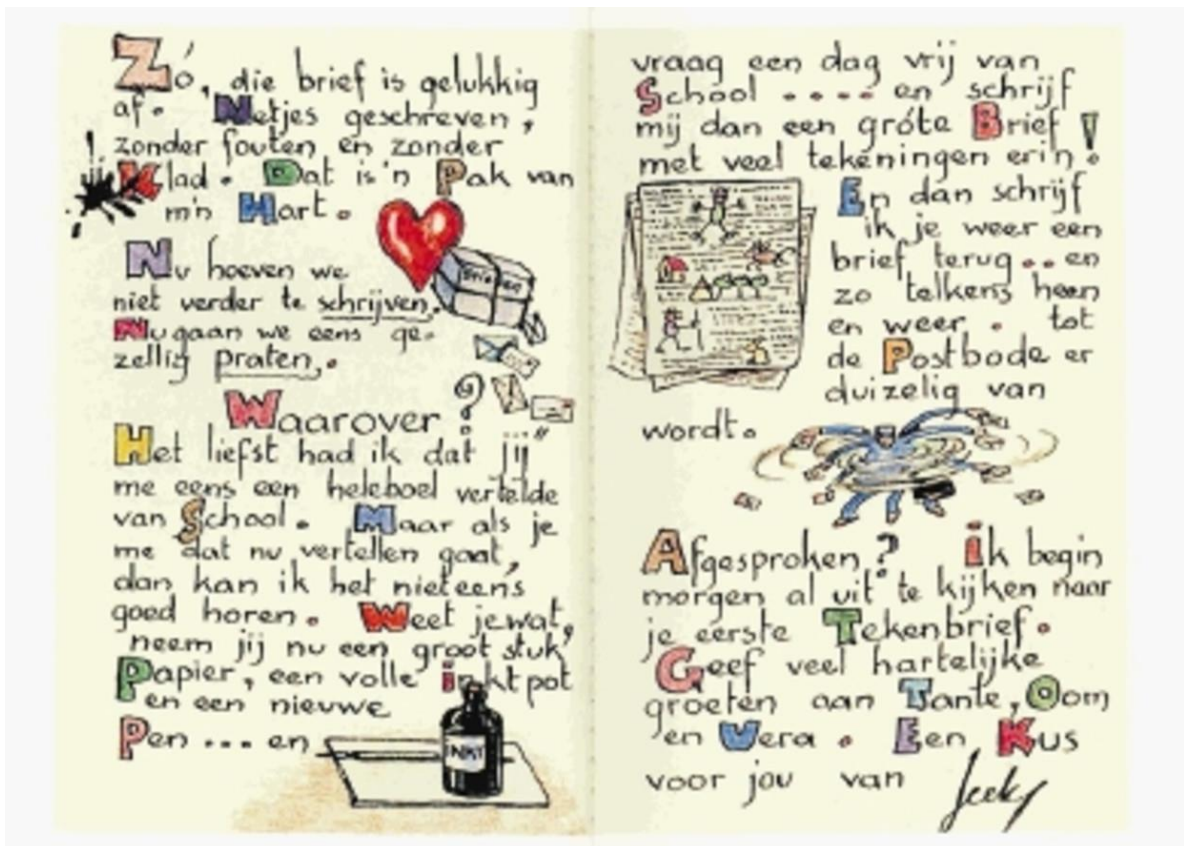 Zó, die brief is gelukkig
af. Netjes geschreven,
zonder fouten en zonder
Klad. Dat is 'n Pak van
m'n Hart.
Brieven
Nu hoeven we
niet verder te schrijven.
Nu gaan we eens ge-
zellig praten.
Waarover?
Het liefst had ik dat jij
me eens een heleboel vertelde
van School. Maar als je
me dat nu vertellen gaat,
dan kan ik het niet eens
goed horen. Weet je wat,
neem jij nu een groot stuk
Papier, een volle inktpot
en een nieuwe
Pen ... en
INKT
vraag een dag vrij van
School .... en schrijf
mij dan een gróte Brief!
met veel tekeningen erin!
En dan schrijf
ik je weer een
brief terug .. en
zo telkens heen
en weer. tot
de Postbode er
duizelig van
wordt.
Afgesproken? ik begin
morgen al uit te kijken naar
je eerste Tekenbrief.
Geef veel hartelijke
groeten aan Tante, Oom
en Vera. Een Kus
voor jou van